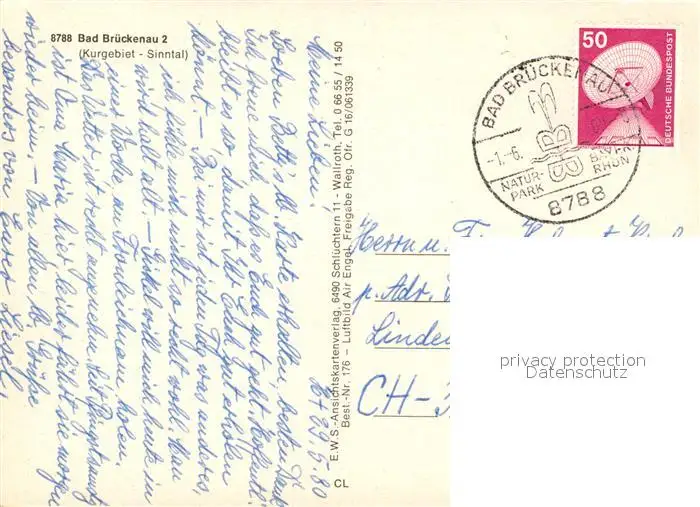 8788 Bad Brückenau 2
(Kurgebiet - Sinntal)
Bt 29.5.80
Meine Lieben!
Soeben Betty's lb. Karte erhalten, besten Dank
Ich freue mich, daß es Euch gut geht. Hoffentl.
bleibt es so damit Ihr Euch gut erholen
könnt. – Bei mir ist jeden Tag was anderes,
ich fühle mich nicht so recht wohl. Man
wird halt alt. – will mich heute in
einer Woche an Fronleichnam holen.
Das Wetter ist recht seit Pfingstsonntag
ist Anna Maria hier leider fährt sie morgen
wieder heim. – Von allen lb. Grüße
besonders von Eurer Liesel.
E.W.S.-Ansichtskartenverlag, 6490 Schlüchtern 11 - Wallroth, Tel. 0 66 55 / 14 50
Best.-Nr. 176 – Luftbild Air Engel, Freigabe Reg. Ofr. G 16/061339
CL
50
DEUTSCHE BUNDESPOST
BAD BRÜCKENAU
-1.-6.
NATUR-
PARK
BAYER.
RHÖN
8788
Herrn u.
p. Adr.
Linden
CH-
privacy protection
Datenschutz